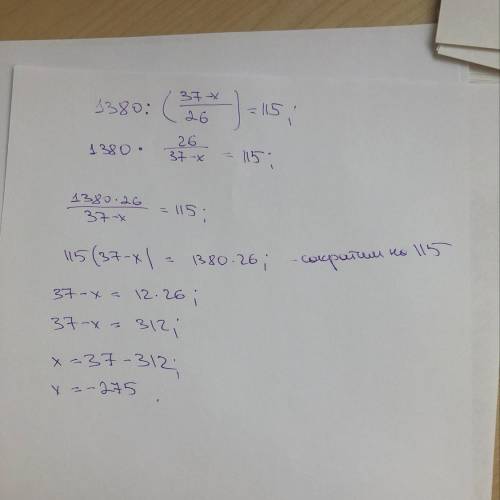 1380 : (37-x / 26) = 115;
1380 · 26 / 37-x = 115;
1380·26 / 37-x = 115;
115(37-x) = 1380·26; -сократим на 115
37-x = 12·26;
37-x = 312;
x = 37-312;
x = -275.